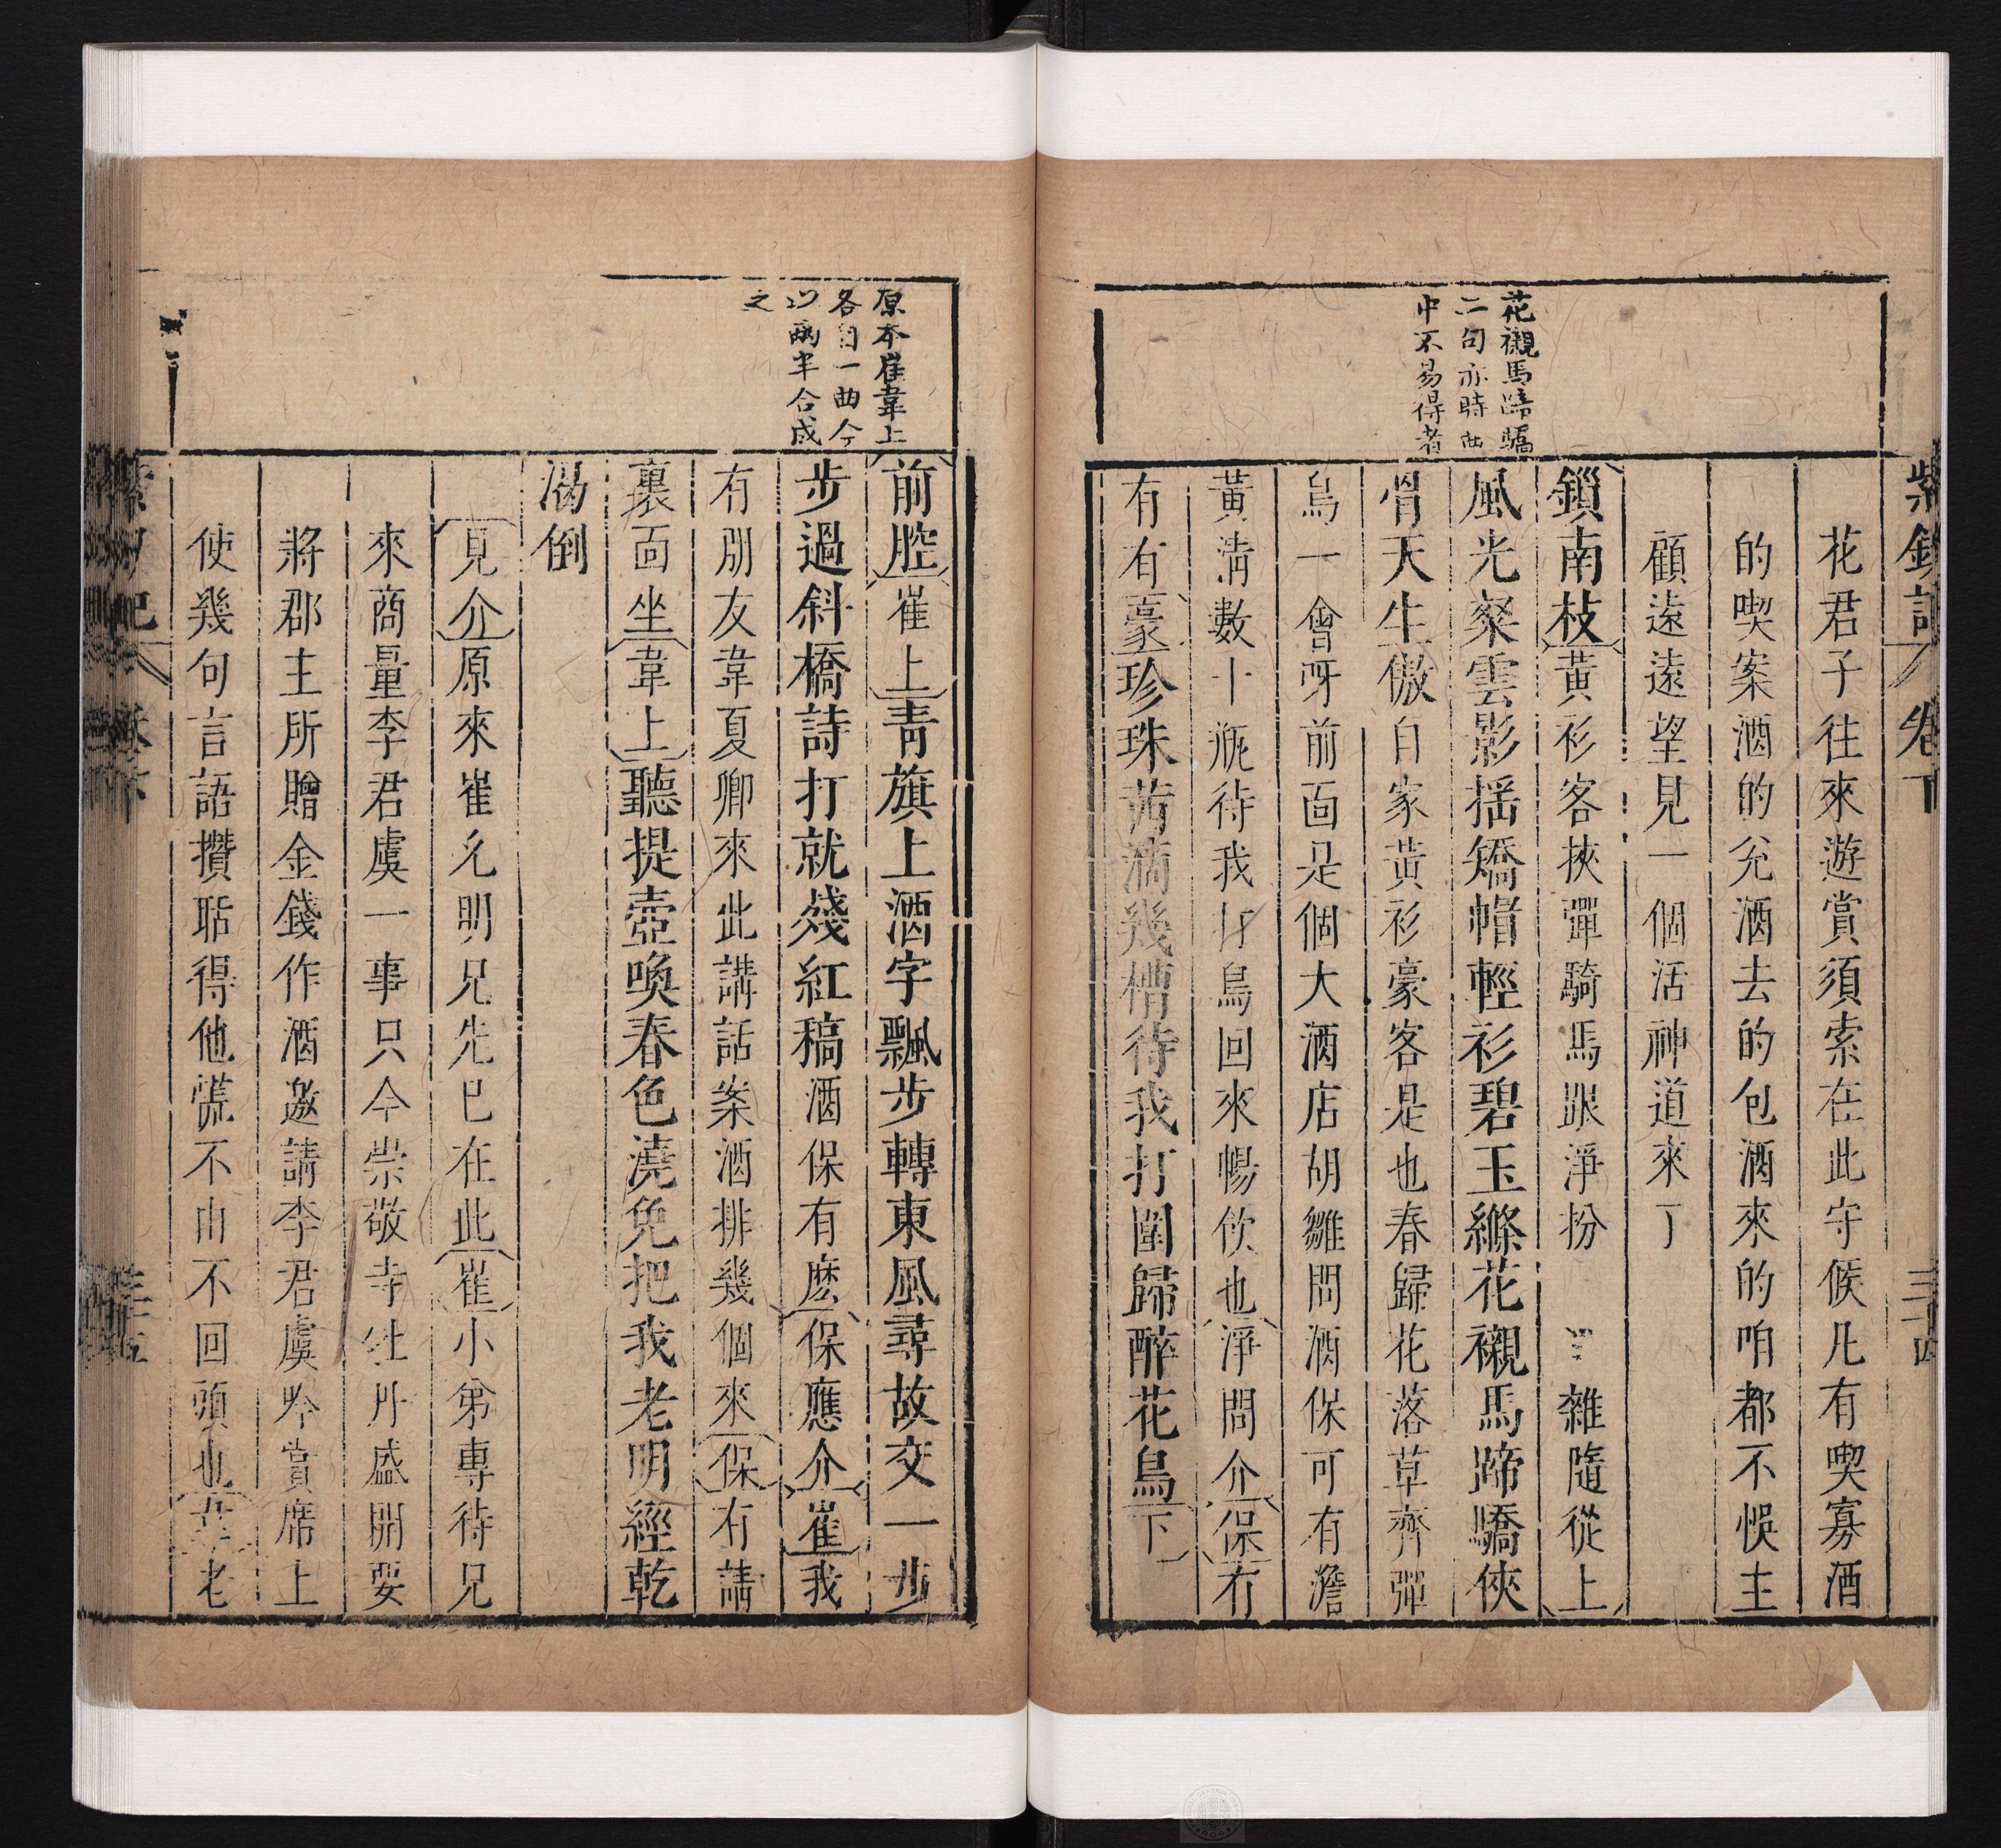 紫釵記 卷下 三十四
花君子往來遊賞須索在此守候凡有喫寡酒
的喫案酒的兊酒去的包酒來的咱都不悞主
顧遠遠望見一個活神道來了
鎻南枝黃衫客挾彈騎馬跟淨扮 雜隨從上
風光粲雲影揺矯帽輕衫碧玉縧花襯馬蹄驕俠
骨天生傲自家黃衫豪客是也春歸花落草齊彈
鳥一會呀前面是個大酒店胡雛問酒保可有澹
黃淸數十瓶待我打鳥回來暢飮也淨問介保有
有有豪珍珠茜滴幾槽待我打圍歸醉花鳥下
花襯馬蹄驕
二句亦時曲
中不易得者
原本崔韋上
各自一曲今
以兩半合成
之
前腔崔上靑旗上酒字飄步轉東風尋故交一步
步過斜橋詩打就殘紅稿酒保有麽保應介崔我
有朋友韋夏卿來此講話案酒排幾個來保有請
裏面坐韋上聽提壺喚春色澆免把我老明經乾
渴倒
見介原來崔允明兄先巳在此崔小弟專待兄
來商量李君虞一事只今崇敬寺牡丹盛開要
將郡主所贈金錢作酒邀請李君虞吟賞席上
使幾句言語攢聒得他慌不由不回頭也韋老